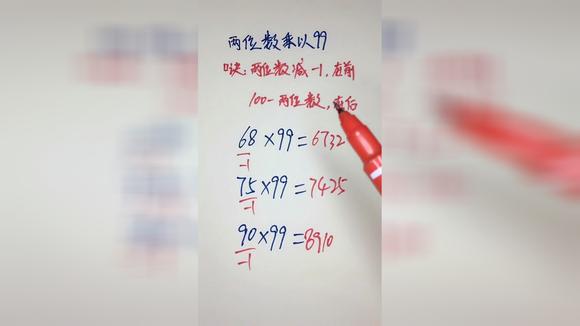 两位数乘以99
口诀:两位数减一1,在前
100-两位数,在后
68×99=6732
-1
75×99=7425
-1
90×99=8910
-1